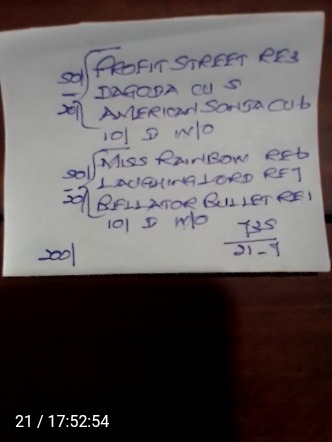 50/ PROFIT STREET RE3
DAGODA CU 5
20/ AMERICAN SONJA CU6
10/ D W/O
50/ MISS RAINBOW RE6
LAUGHING LORD RE7
20/ BELLATOR BULLET RE1
10/ D W/O
735
200/ 21-7
21 / 17:52:54